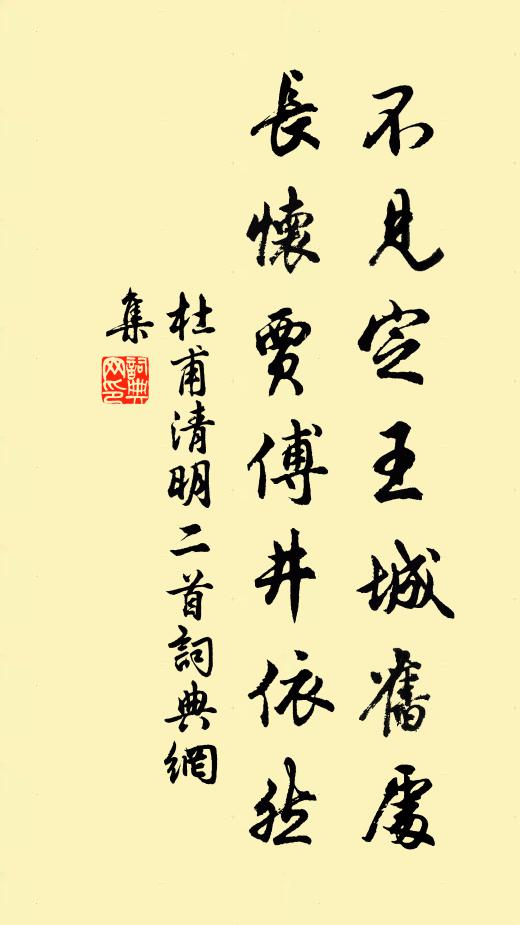 不見定王城舊處
長懷賈傅井依然
杜甫清明二首詞典網
集
詞典
网印